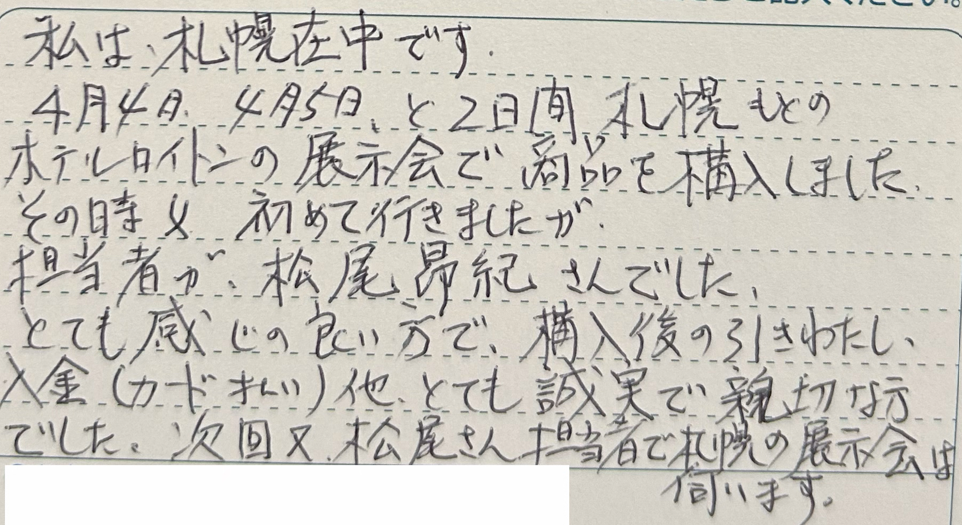 私は、札幌在中です.
4月4日、4月5日、と2日間 札幌もとの
ホテルロイトンの展示会で商品を構入しました.
その時は 初めて行きましたが.
担当者が、松尾昂紀さんでした、
とても感じの良い方で、構入後の引きわたし、
入金(カード払い)他、とても誠実で親切な方
でした。次回又、松尾さん担当者で札幌の展示会は
伺います。